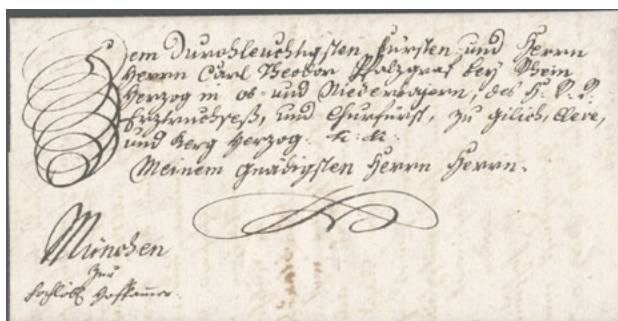 Dem Durchleuchtigsten Fürsten und Herrn
Herrn Carl Theodor Pfalzgraf bey Rhein
Herzog in ob- und Niederbajern, des H: R: R:
Erztruchseß, und Churfürst, zu Gilich, Cleve,
und Berg Herzog. tt: tt:
Meinem gnädigsten Herrn Herrn.
München
zur
hochlöbl Hofkammer.